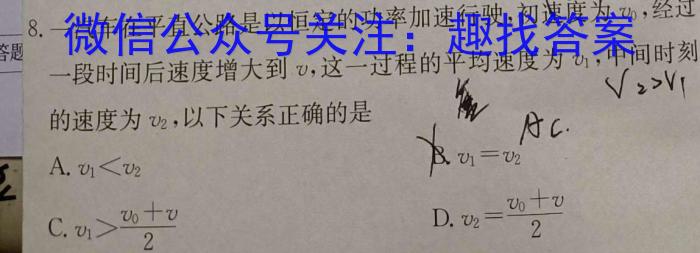 8. 一汽车在平直公路是以恒定的功率加速行驶,初速度为 v₀,经过
微信公众号关注：趣找答案
答题
一段时间后速度增大到 v,这一过程的平均速度为 v₁,中间时刻
V₂>V₁
的速度为 v₂,以下关系正确的是
AC.
A. v₁<v₂
B. v₁=v₂
C. v₁>(v₀+v)/2
D. v₂=(v₀+v)/2